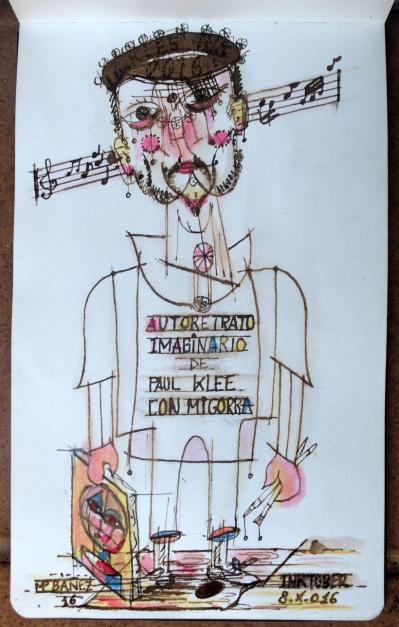 AUTORETRATO
IMAGINARIO
DE
PAUL KLEE
CON MI GORRA
INKTOBER
16
8-X-016